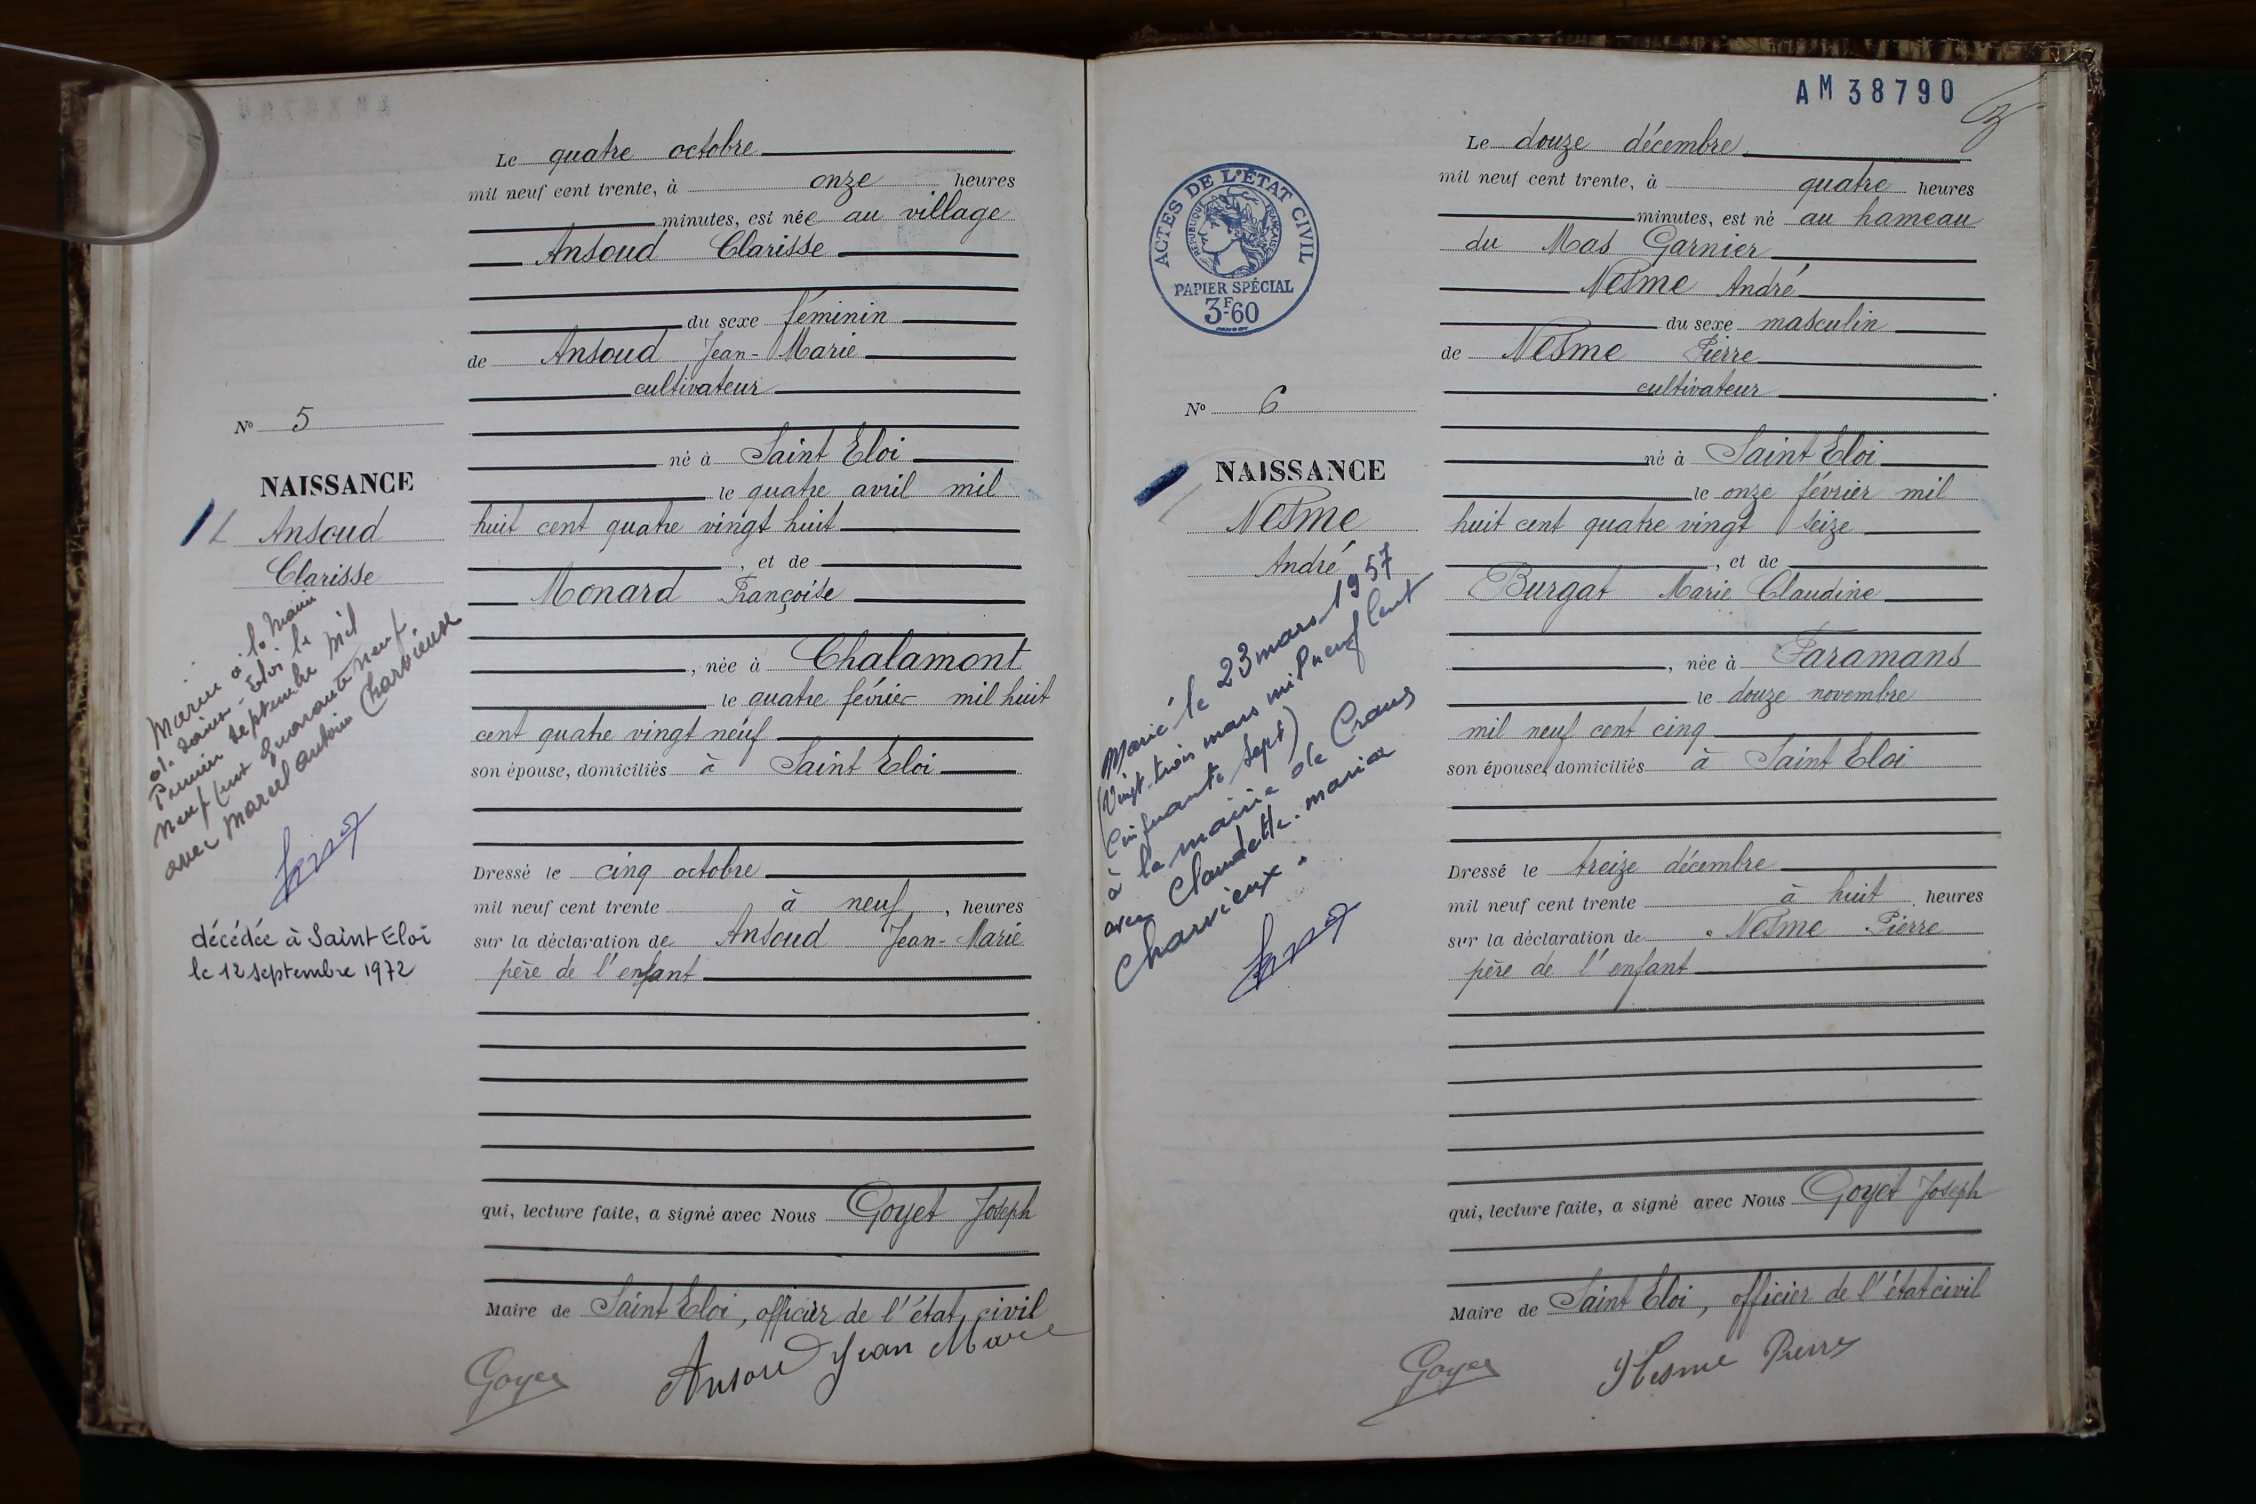 Le quatre octobre
mil neuf cent trente, à onze heures
minutes, est née au village
Ansoud Clarisse
du sexe féminin
de Ansoud Jean-Marie
cultivateur
né à Saint Eloi
le quatre avril mil
huit cent quatre vingt huit
, et de
Monard Françoise
, née à Chalamont
le quatre février mil huit
cent quatre vingt neuf
son épouse, domiciliés à Saint Eloi
Dressé le cinq octobre
mil neuf cent trente à neuf, heures
sur la déclaration de Ansoud Jean-Marie
père de l'enfant
qui, lecture faite, a signé avec Nous Goyet Joseph
Maire de Saint Eloi, officier de l'état civil
Goyet Ansoud Jean Marie
Nº 5
NAISSANCE
Ansoud
Clarisse
Mariée à la Mairie
de Saint-Eloi le
Premier septembre mil
neuf cent quarante neuf
avec Marcel Antoine Charvieux
décédée à Saint Eloi
le 12 septembre 1972
AM38790
ACTES DE L'ÉTAT CIVIL
RÉPUBLIQUE FRANÇAISE
PAPIER SPÉCIAL
3F60
Nº 6
NAISSANCE
Nesme
André
Marié le 23 mars 1957
(Vingt trois mars mil neuf cent
cinquante sept)
à la mairie de Crans
avec Claudette-Maria
Charvieux.
Le douze décembre
mil neuf cent trente, à quatre heures
minutes, est né au hameau
du Mas Garnier
Nesme André
du sexe masculin
de Nesme Pierre
cultivateur
né à Saint Eloi
le onze février mil
huit cent quatre vingt seize
, et de
Burgat Marie Claudine
, née à Faramans
le douze novembre
mil neuf cent cinq
son épouse, domiciliés à Saint Eloi
Dressé le treize décembre
mil neuf cent trente à huit heures
sur la déclaration de Nesme Pierre
père de l'enfant
qui, lecture faite, a signé avec Nous Goyet Joseph
Maire de Saint Eloi, officier de l'état civil
Goyet Nesme Pierre